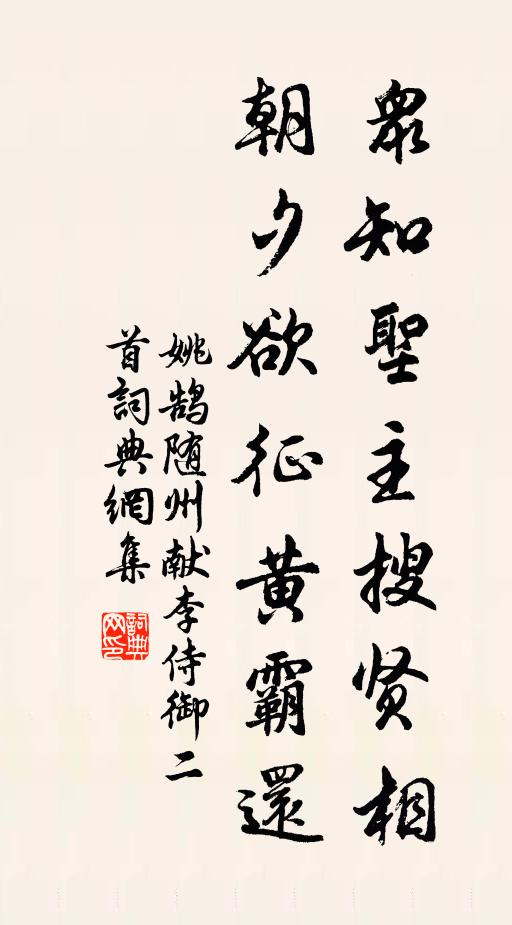 眾知聖主搜贤相
朝夕欲征黄霸還
姚鹄随州献李侍御二
首詞典網集
詞典网印